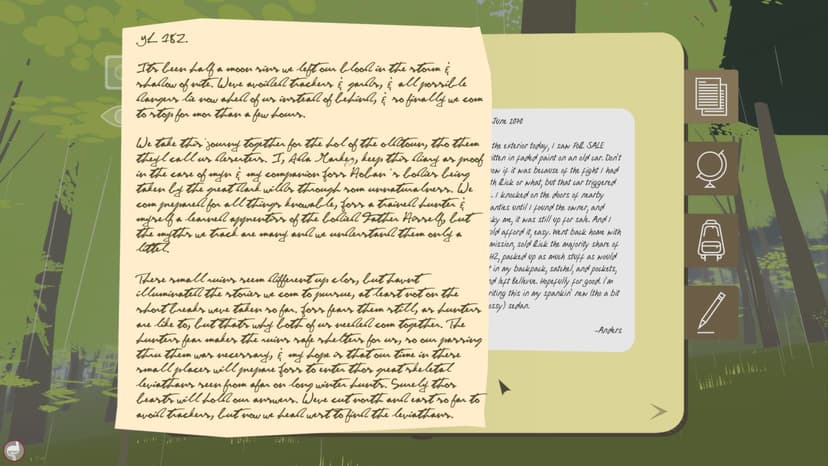 yL 182.
Its been half a moon sins we left our blood in the storm &
shadow of nite. Weve avoided trackers & gards, & all possible
dangers lie now ahed of us insted of behind, & so finally we com
to stop for mor than a few hours.
We take this journy together for the hol of the oldtown, tho them
theyl call us deserters. I, Ada keep this diary as proof
in the case of myn & my companion Joss bodies being
taken by the great dark wilds through som unnaturalness. We
com prepared for all things knowable, Joss a trained hunter &
myself a learned apprentiss of the Father but
the myths we track are many and we understand them only a
littel.
These small ruins seem different up clos, but havnt
illuminated the stories we com to pursue, at least not on the
short breaks weve taken so far. Joss fears them still, as hunters
are like to, but thats why both of us needed com together. The
hunters fear makes the ruins safe shelters for us, so our passing
thru them was necessary, & my hope is that our time in these
small places will prepare Joss to enter thos great skeletal
leviathans seen from afar on long winter hunts. Surely thos
beasts will hold our answers. Weve cut north and east so far to
avoid trackers, but now we head west to find the leviathans.
June 2070
the exterior today, I saw FOR SALE
written in faded paint on an old car. Don't
know if it was because of the fight I had
with Rick or what, but that car triggered
I knocked on the doors of nearby
until I found the owner, and
lucky me, it was still up for sale. And I
could afford it, easy. Went back home with
mission, sold Rick the majority share of
packed up as much stuff as would
fit in my backpack, satchel, and pockets,
and left Bellevue. Hopefully for good. I'm
writing this in my spankin' new (tho a bit
sedan.
-Anders